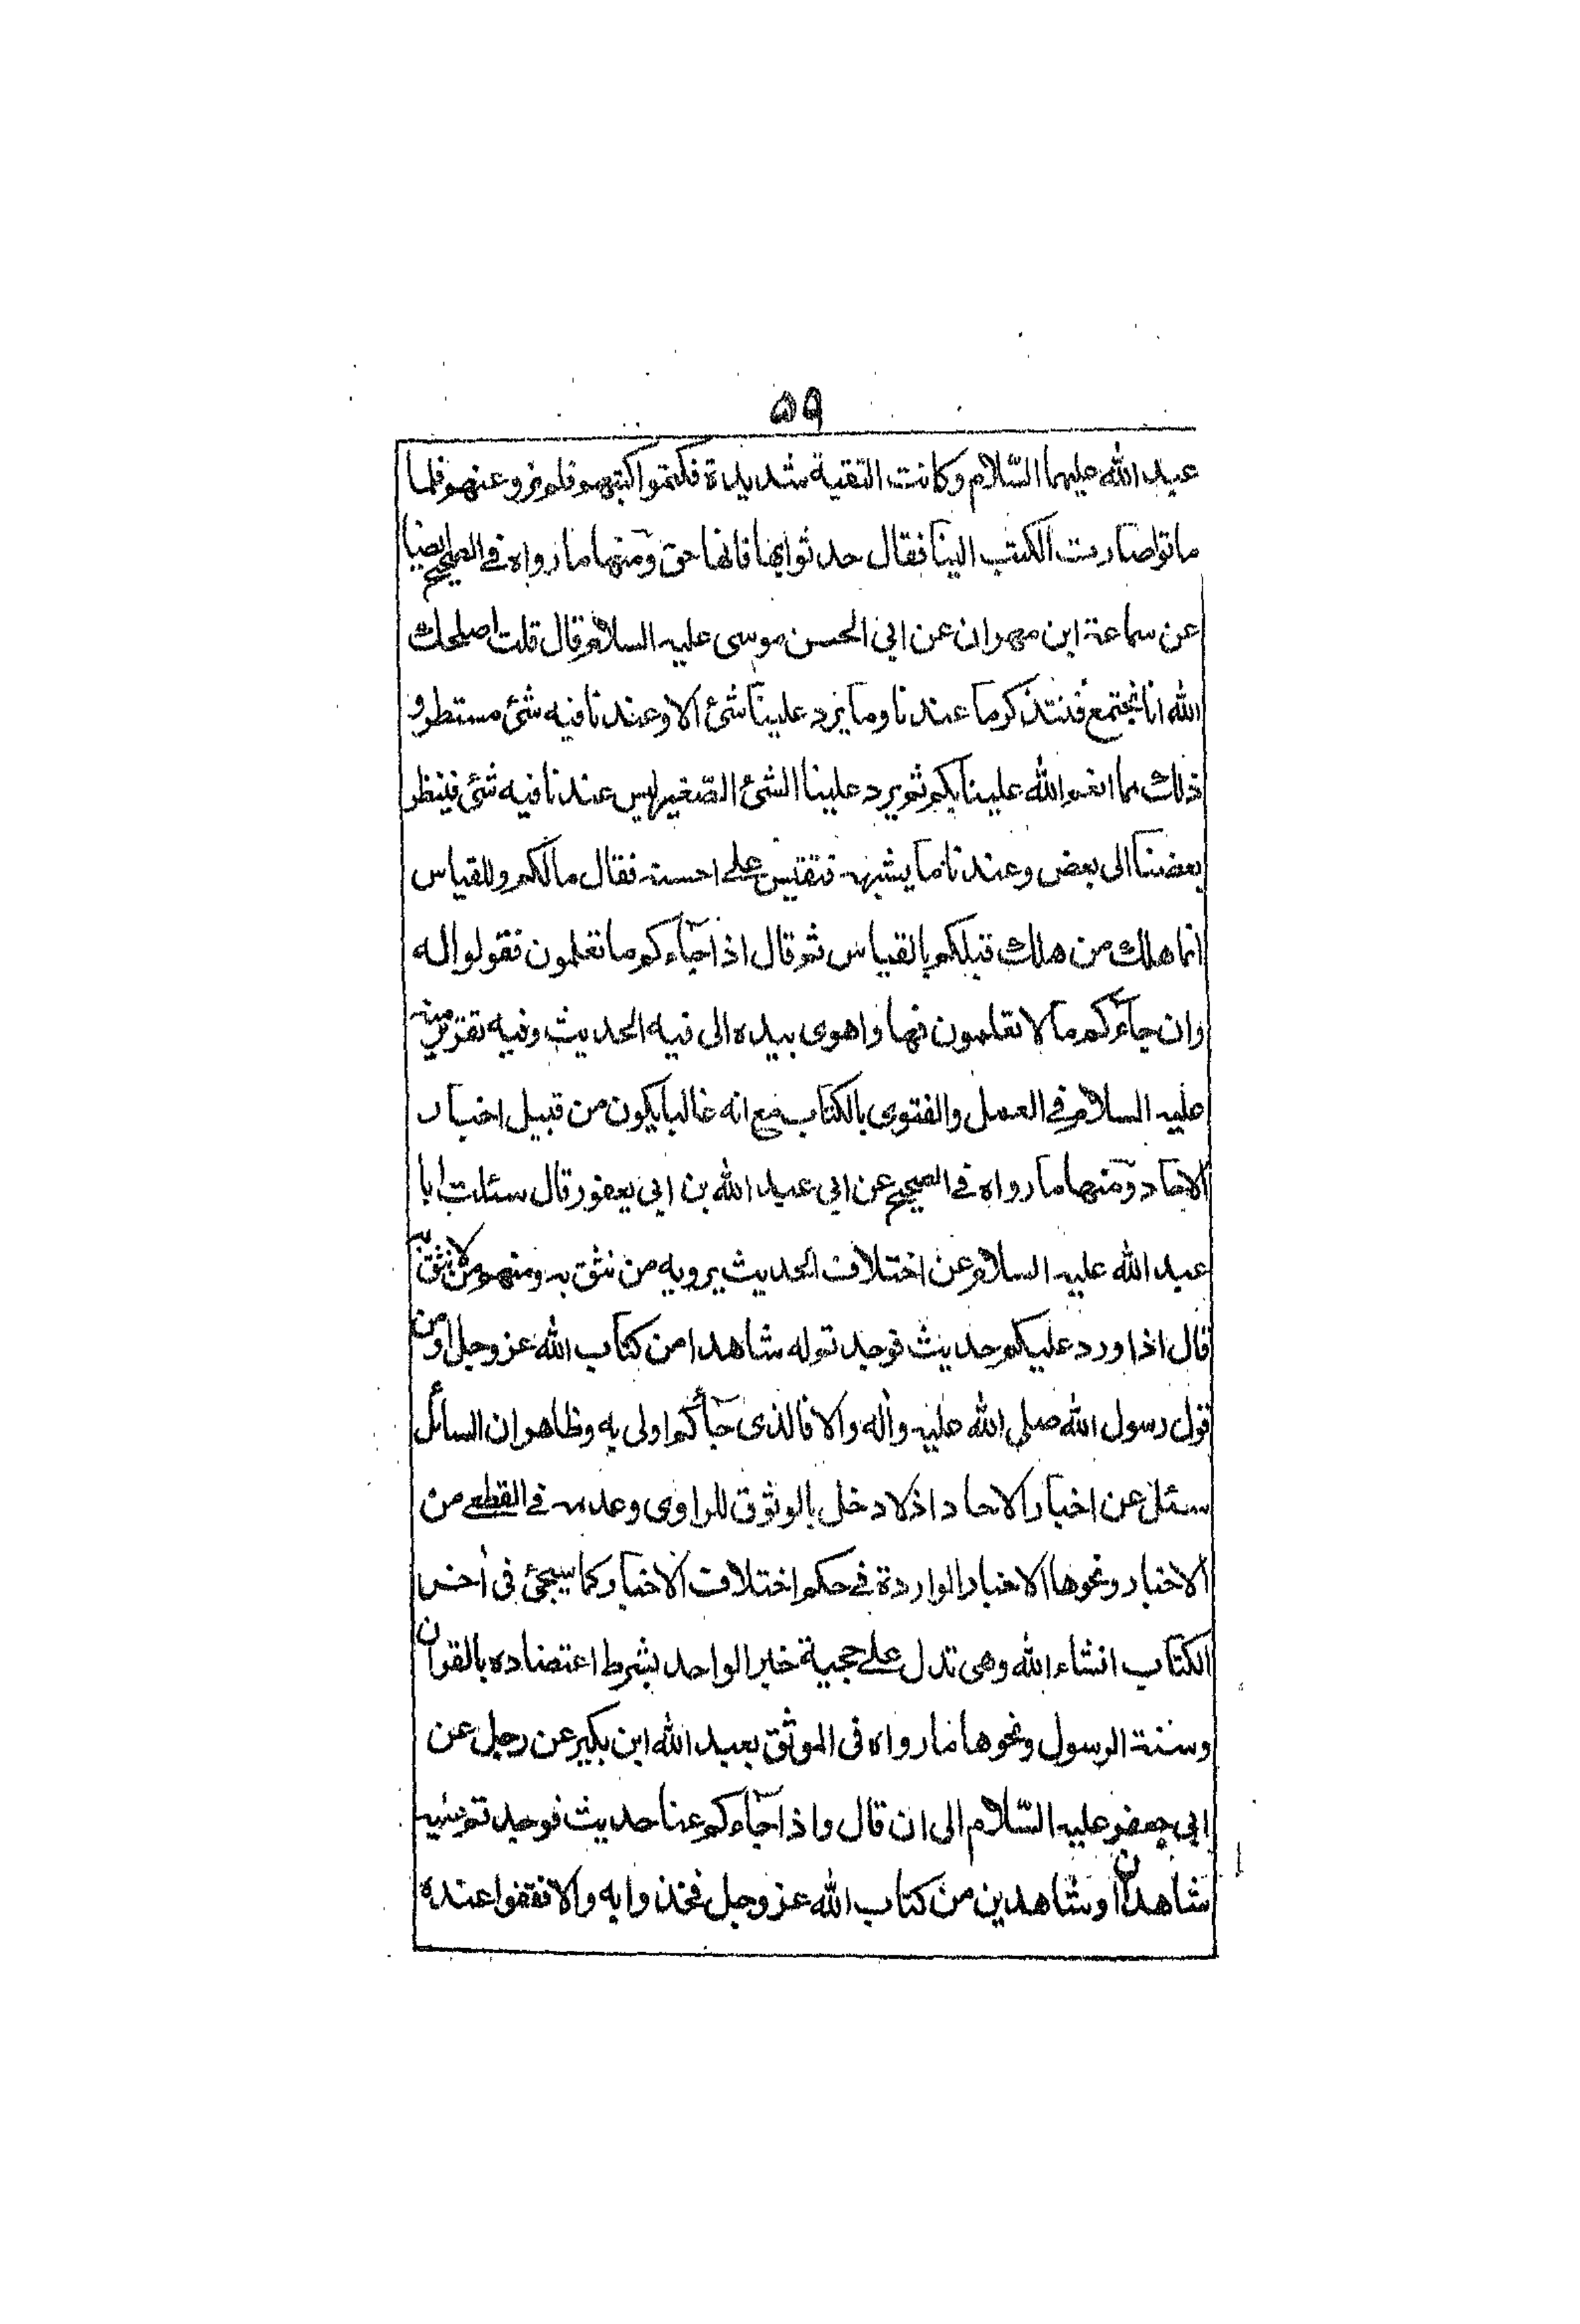 ٥٩
عبد الله عليهما السّلام وكانت التقية شديدة فكتموا كتبهم فلم نرو عنهم فلما
ماتوا صارت الكتب الينا فقال حدثوا بها فانها حق ومنها ما رواه في الصحيح ايضا
عن سماعة ابن مهران عن ابي الحسن موسى عليه السلام قال قلت اصلحك
الله انا نجتمع فنتذاكر ما عندنا وما يرد علينا شئ الا وعندنا فيه شئ مستطر و
ذلك مما انعم الله علينا بكم ثم يرد علينا الشئ الصّغير ليس عندنا فيه شئ فينظر
بعضنا الى بعض وعندنا ما يشبهه فنقيس على احسنه فقال مالكم وللقياس
انما هلك من هلك قبلكم بالقياس ثم قال اذا جآءكم ما تعلمون فقولوا له
وان جآءكم ما لا تعلمون فها واهوى بيده الى فيه الحديث وفيه تقرير منه
عليه السلام في العمل والفتوى بالكتاب مع انه غالبا يكون من قبيل اخبار
الاحاد ومنها ما رواه في الصحيح عن ابي عبد الله بن ابي يعفور قال سئلت ابا
عبد الله عليه السلام عن اختلاف الحديث يرويه من نثق به ومنهم من لا نثق به
قال اذا ورد عليكم حديث فوجدتم له شاهدا من كتاب الله عز وجل او من
قول رسول الله صلى الله عليه وآله والا فالذى جآءكم اولى به وظاهر ان السائل
سئل عن اخبار الاحاد اذ لا دخل بالوثوق للراوى وعدمه في القطع من
الاخبار ونحوها الاخبار الواردة في حكم اختلاف الاخبار كما سيجئ فى أخر
الكتاب انشاء الله وهى تدل على حجية خبر الواحد بشرط اعتضاده بالقران
وسنة الرسول ونحوها ما رواه فى الموثق بعبد الله ابن بكير عن رجل عن
ابى جعفر عليه السّلام الى ان قال واذا جآءكم عنا حديث فوجدتم عليه
شاهدا او شاهدين من كتاب الله عز وجل فخذوا به والا فقفوا عنده